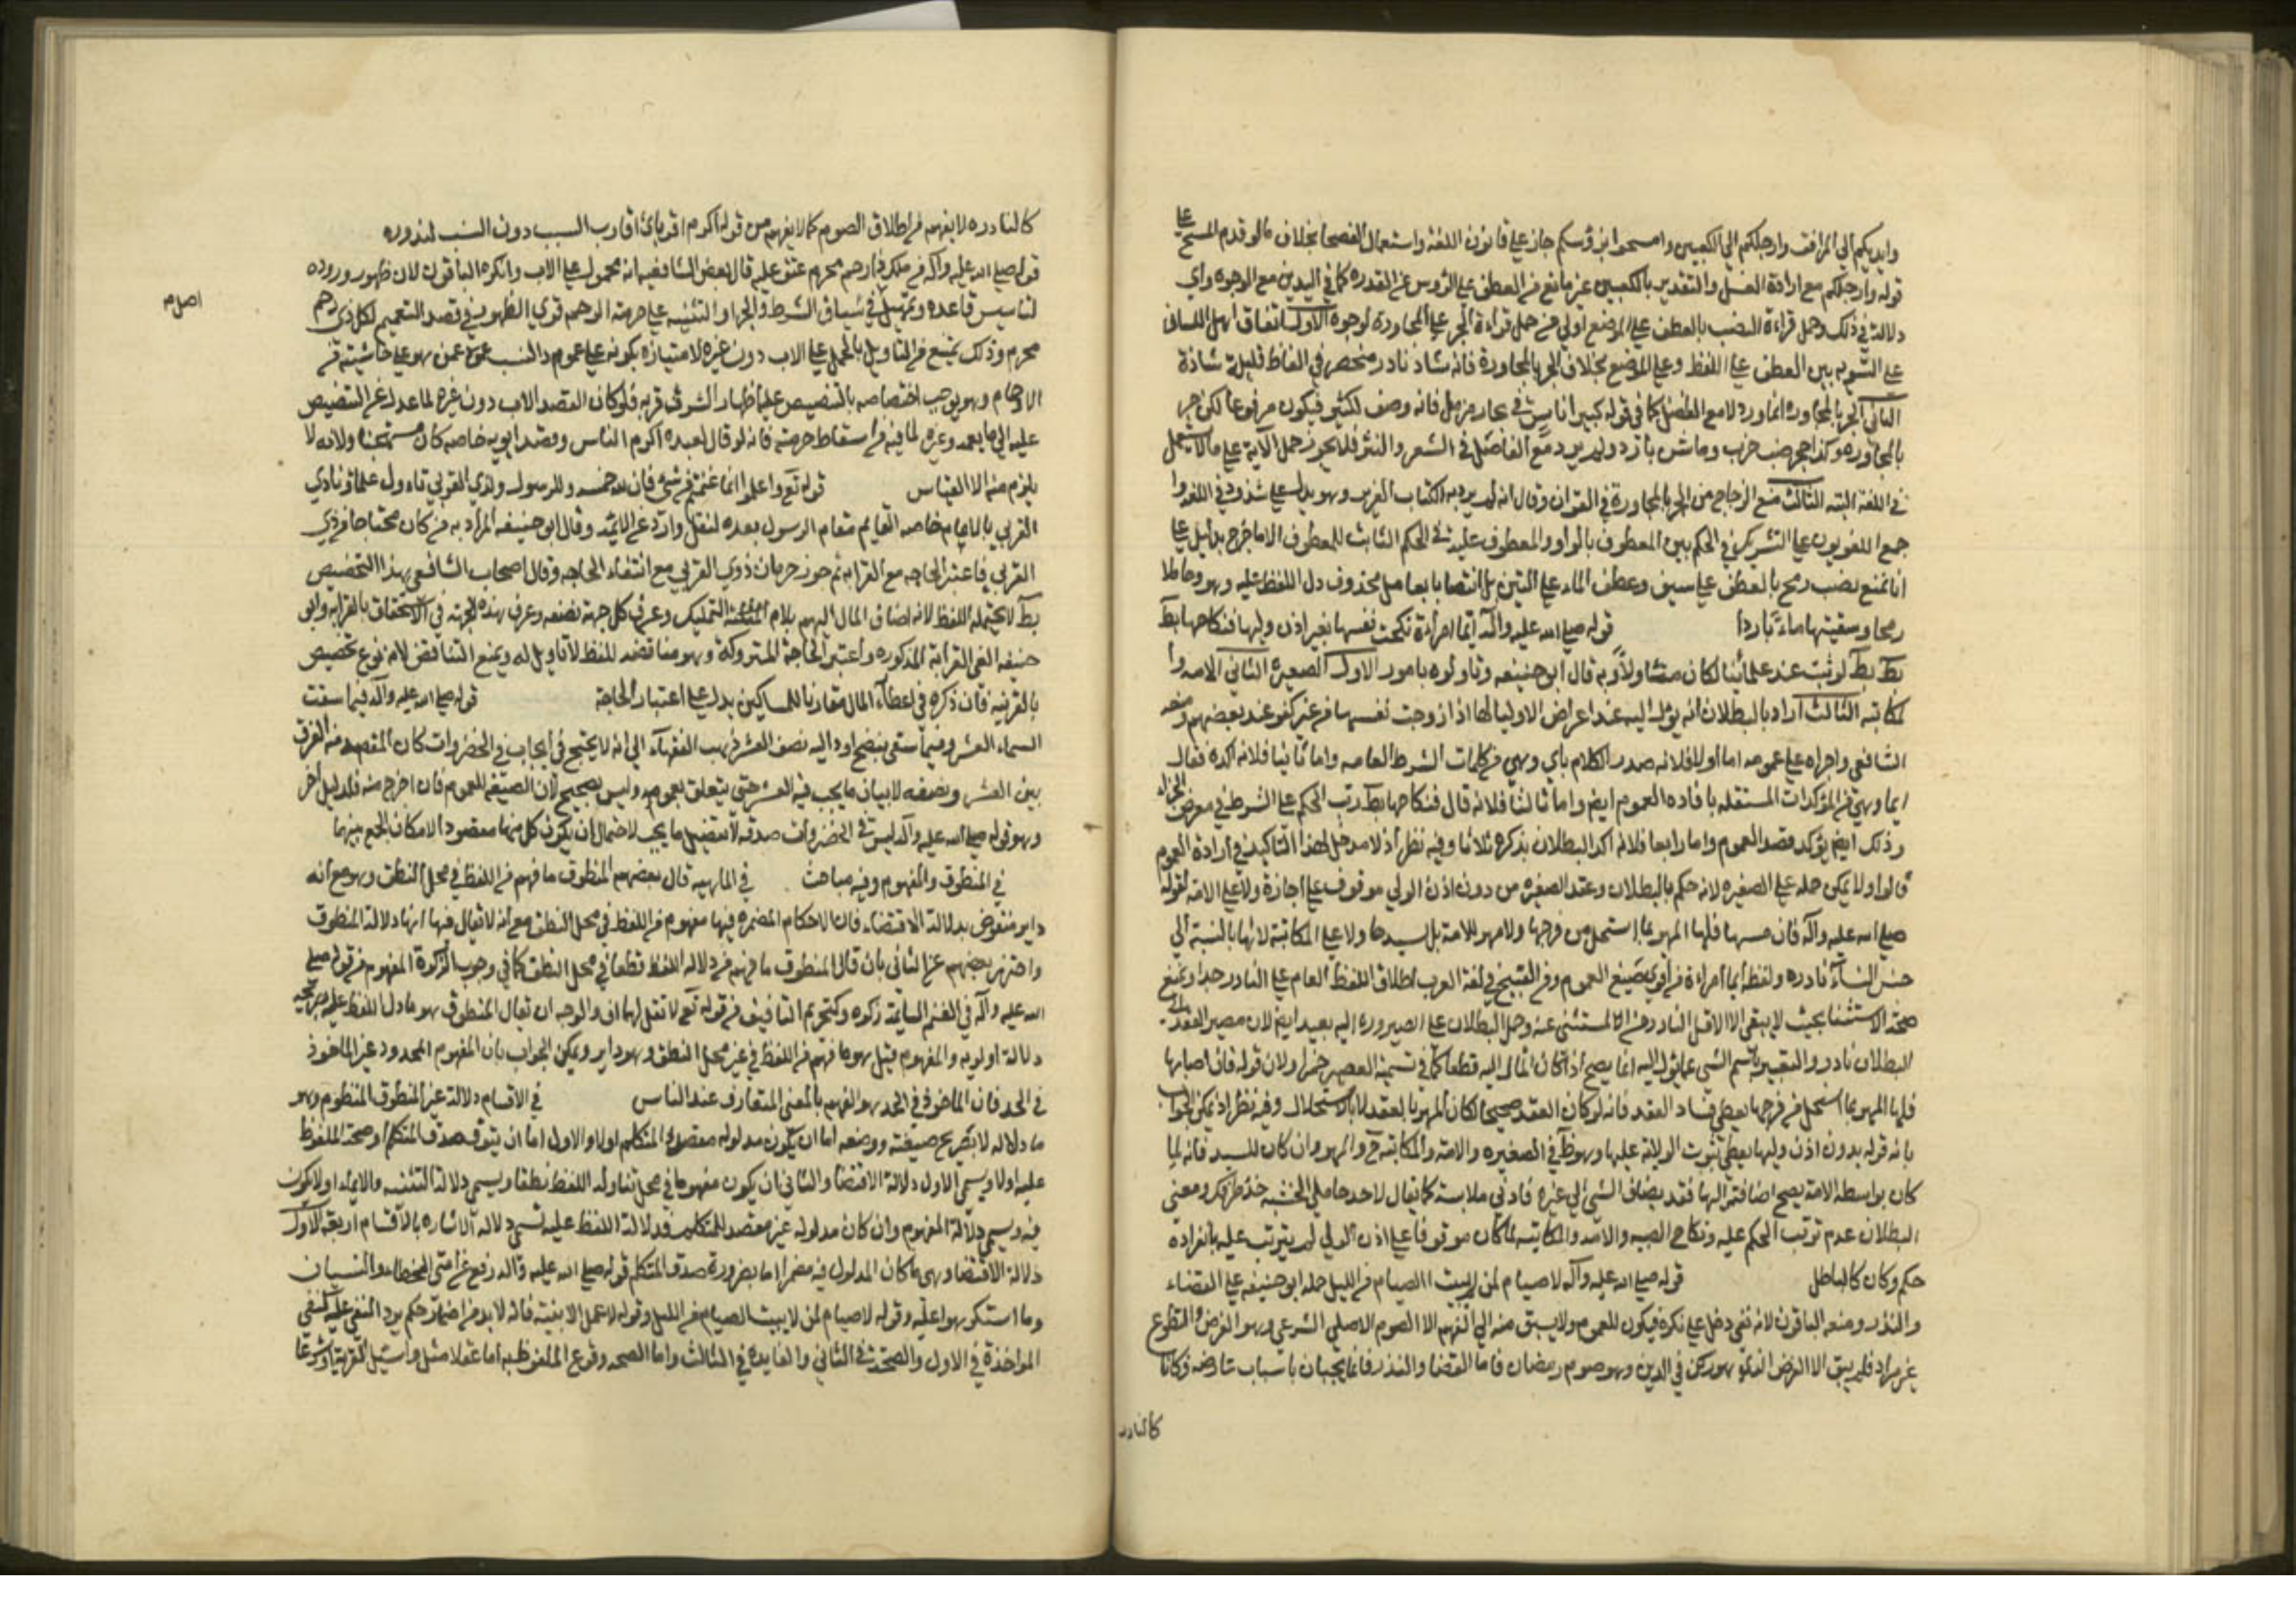 وايديكم الي المرافق وارجلكم الي الكعبين وامسحوا برؤسكم جاز علي قانون اللغة واستعمال الفصحا بخلاف مالو قدم المسح علي
قوله وارجلكم مع ارادة الغسل والتقدير بالكعبين غير مانع من العطف علي الرؤس غير المقدره كما في اليدين مع الوجوه واي
دلالة في ذلك وحمل قراءة النصب بالعطف علي الموضع اولي من حمل قراءة الجر علي المجاورة لوجوه الاول اتفاق اهل اللسان
علي التسوية بين العطف علي اللفظ وعلي الموضع بخلاف الجر بالمجاورة فانه شاذ نادر منحصر في الفاظ قليلة شاذة
الثاني الجر بالمجاوره انما ورد لا مع الفصل كما في قوله كبير اناس في بجاد مزمل فانه وصف لكبير فيكون مرفوعا لكن جر
بالمجاوره وكذا جحر ضب خرب وماء شن بارد ولم يرد مع الفاصل في الشعر والنثر فلا يجوز حمل الآية علي مالا يحتمل
في اللغة البته الثالث منع الزجاج من الجر بالمجاورة في القران وقال انه لم يرد به الكتاب العزيز وهو يدل علي شذوذه في اللغه
جمع اللغويون علي التشريك في الحكم بين المعطوف بالواو والمعطوف عليه في الحكم الثابت للمعطوف الا ما خرج بدليل علي
انا نمنع نصب رمح بالعطف علي سيف وعطف الماء علي التبن بل انتصابا بعامل محذوف دل اللفظ عليه وهو وحاملا
رمحا وسقيتها ماءً باردا قوله صلي الله عليه وآله أيما امرأة نكحت نفسها بغير اذن وليها فنكاحها بط
بط بط لو ثبت عند علمائنا لكان متاولا وبه قال ابو حنيفه وتاولوه بامور الاول الصغيرة الثاني الامه وا
لمكاتبه الثالث اراد بالبطلان انه يؤل اليه عند اعراض الاوليا لها اذا زوجت نفسها من غير كفو عند بعضهم ومنعه
الشافعي واجراه علي عمومه اما اولا فلانه صدر الكلام باي وهي من كلمات الشرط العامه واما ثانيا فلانه اكده فقال
ايما وهي من المؤكدات المستقله بافاده العموم ايض واما ثالثا فلانه قال فنكاحها بط رتب الحكم علي الشرط في معرض الجزاء
وذلك ايض يؤكد قصد العموم واما رابعا فلانه اكد البطلان بذكره ثلاثا وفيه نظر اذ لا مدخل لهذا التاكيد في ارادة العموم
قالوا ولا يمكن حمله علي الصغيره لانه حكم بالبطلان وعقد الصغيره من دون اذن الولي موقوف علي اجازة ولا علي الامة لقوله
صلي الله عليه وآله فان مسها فلها المهر بما استحل من فرجها ولا مهر للامة بل لسيدها ولا علي المكاتبة لانها بالنسبة الي
جنس النساء نادره ولفظة ايما امراءة من اقوي صيغ العموم ومن القبيح في لغة العرب اطلاق اللفظ العام علي النادر جدا وتمنع
صحة الاستثنا بحيث لا يبقي الا الاقل النادر من المستثني عنه وحمل البطلان علي الصيروره اليه بعيد ايض لان مصير العقد الي
البطلان نادر والتعبير باسم الشي عما يؤل اليه انما يصح اذا كان المآل اليه قطعا كما في تسمية العصير خمرا ولان قوله فان اصابها
فلها المهر بما استحل من فرجها يعطي فساد العقد فانه لو كان العقد صحيحا لكان المهر بالعقد لا بالاستحلال وفيه نظر اذ يمكن الجواب
بانه قوله بدون اذن وليها يعطي ثبوت الولاية عليها وهو ظ في الصغيره والامة والمكاتبة ح والمهر وان كان للسيد فانه لما
كان بواسطة الامة يصح اضافته اليها فقد يضاف الشي الي غيره فادني ملابسة كما يقال لاحد حاملي الخشبه خذ طرفك ومعني
البطلان عدم ترتب الحكم عليه ونكاح الصبيه والامه والمكاتبه لما كان موقوفا علي اذن الولي لم يترتب عليه بانفراده
حكم وكان كالباطل قوله صلي الله عليه وآله لا صيام لمن لم يبيت الصيام من الليل حمله ابو حنيفه علي القضاء
والنذر ومنعه الباقون لانه نفي دخل علي نكرة فيكون للعموم ولا يسبق منه الي الفهم الا الصوم الاصلي الشرعي وهو الفرض والتطوع
غير مراد فلم يبق الا الفرض الذي هو ركن في الدين وهو صوم رمضان فاما القضا والنذر فانما يجبان باسباب عارضه فكانا
كالنادر
كالنادره لا يفهم من اطلاق الصوم كما لا يفهم من قوله اكرم اقربائ اقارب السبب دون النسب لندوره
قوله صلي الله عليه وآله من ملك ذا رحم محرم عتق عليه قال بعض الشافعيه انه محمول علي الاب وانكره الباقون لان ظهور وروده
لتاسيس قاعده وتمهيد في سياق الشرط والجزا والتنبيه علي حرمة الرحم قوي الظهور في قصد التعميم لكل ذي رحم
اصل م
محرم وذلك يمنع من التاويل بالحمل علي الاب دون غيره لامتيازه بكونه علي عموم والنسب عن من هو علي حاشيته من
الارحام وهو يوجب اختصاصه بالتنصيص عليه اظهارا لشرف قربه فلو كان القصد الاب دون غيره لما عدل عن التنصيص
عليه الي ما يعمه وغيره لما فيه من اسقاط حرمته فانه لو قال لعبده اكرم الناس وقصد ابويه خاصه كان مستهجنا ولانه لا
يلزم منه الا القياس قوله تع واعلموا انما غنمتم من شئ فان لله خمسه وللرسول ولذي القربي تاول علماؤنا ذي
القربي بالامام خاصه القايم مقام الرسول بعده لنقل وارد عن الائمه وقال ابو حنيفه المراد به من كان محتاجا من ذي
القربي فاعتبر الحاجه مع القرابه ثم جوز حرمان ذوي القربي مع انتفاء الحاجه وقال اصحاب الشافعي بهذا التخصيص
بط لا يحتمله اللفظ لانه اضاف المال اليهم بلام التمليك وعرف كل جهة بصفه وعرف هذه الجهة في الاستحقاق بالقرابه وابو
حنيفه الغي القرابة المذكوره واعتبر الحاجة المتروكة وهو مناقضه للفظ لا تاويل له ويمنع التناقض لانه نوع تخصيص
بالقرينه فان ذكره في اعطاء المال مقارنا للمساكين يدل علي اعتبار الحاجة قوله صلي الله عليه وآله فيما سقت
السماء العشر وفيما سقي بنضح او داليه نصف العشر ذهب الفقهاء الي انه لا يحتج في ايجاب في الخضروات كان المقصد منه الفرق
بين العشر ونصفه لا بيان ما يجب فيه العشر حتي يتعلق بعمومه وليس بصحيح لان الصيغة للعموم فان اخرج منه فلدليل اخر
وهو قوله صلي الله عليه وآله ليس في الخضروات صدقه لا تفصيل ما يجب لاحتمال ان يكون كل منهما مقصودا لامكان الجمع بينهما
في المنطوق والمفهوم وفيه مباحث في الماهيه قال بعضهم المنطوق ما فهم من اللفظ في محل النطق وهو مع انه
داير منقوض بدلالة الاقتضاء فان الاحكام المضمره فيها مفهوم من اللفظ في محل النطق مع انه لا يقال فيها انها دلالة المنطوق
واحترز بعضهم عن الثاني بان قال المنطوق ما فهم من دلالة اللفظ قطعا في محل النطق كما في وجوب الزكوة المفهوم من قوله صلي
الله عليه وآله في الغنم السايمة زكوه وكتحريم التافيف من قوله تع لا تقل لهما اف والوجه ان يقال المنطوق هو ما دل اللفظ عليه بصريحه
دلالة اولويه والمفهوم قيل هو ما فهم من اللفظ في غير محل النطق وهو داير ويمكن الجواب بان المفهوم المحدود غير الماخوذ
في الحد فان الماخوذ في الحد هو الفهم بالمعني المتعارف عند الناس في الاقسام دلالة غير المنطوق المنظوم وهو
ما دلاله لا بصريح صيغته ووضعه اما ان يكون مدلوله مقصودا للمتكلم اولا والاول اما ان يتوقف صدق المتكلم او صحة الملفوظ
عليه اولا ويسمي الاول دلالة الاقتضا والثاني ان يكون مفهوما في محل تناوله اللفظ نطقا ويسمي دلالة التنبيه والايماء او لا يكون
فيه ويسمي دلالة المفهوم وان كان مدلوله غير مقصد للمتكلم فدلالة اللفظ عليه تسمي دلالة الاشاره بالاقسام اربعة الاول
دلالة الاقتضا وهي ما كان المدلول فيه مضمرا اما بضرورة صدق المتكلم قوله صلي الله عليه وآله رفع عن امتي الخطاء والنسيان
وما استكرهوا عليه وقوله لا صيام لمن لا يبيت الصيام من الليل وقوله لا عمل الا بنيته فانه لا بد من اضمار حكم يرد المنفي عليه كنفي
المواخذة في الاول والصحة في الثاني والفايده في الثالث واما الصحه وقوع الملفوظ به اما عقلا مثل واسئل القرية او شرعا